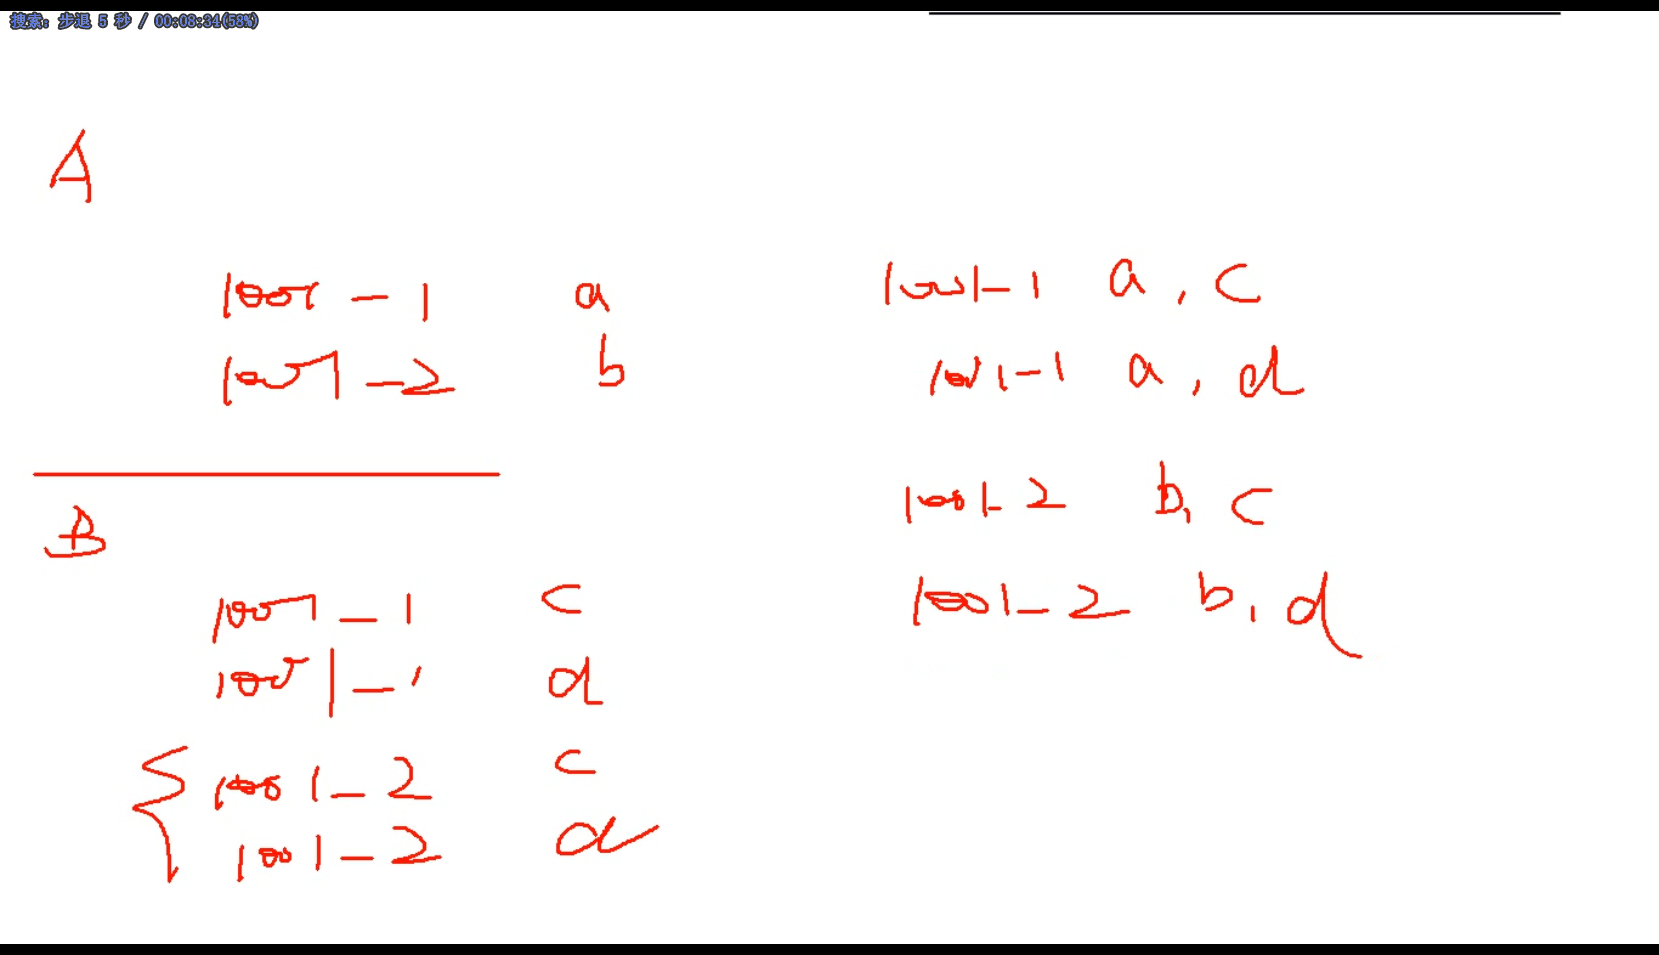 搜索: 步退 5 秒 / 00:08:34(58%)
A
1001 - 1 a
1001 - 2 b
B
1001 - 1 c
1001 - 1 d
1001 - 2 c
1001 - 2 d
1001 - 1 a, c
1001 - 1 a, d
1001 - 2 b, c
1001 - 2 b, d